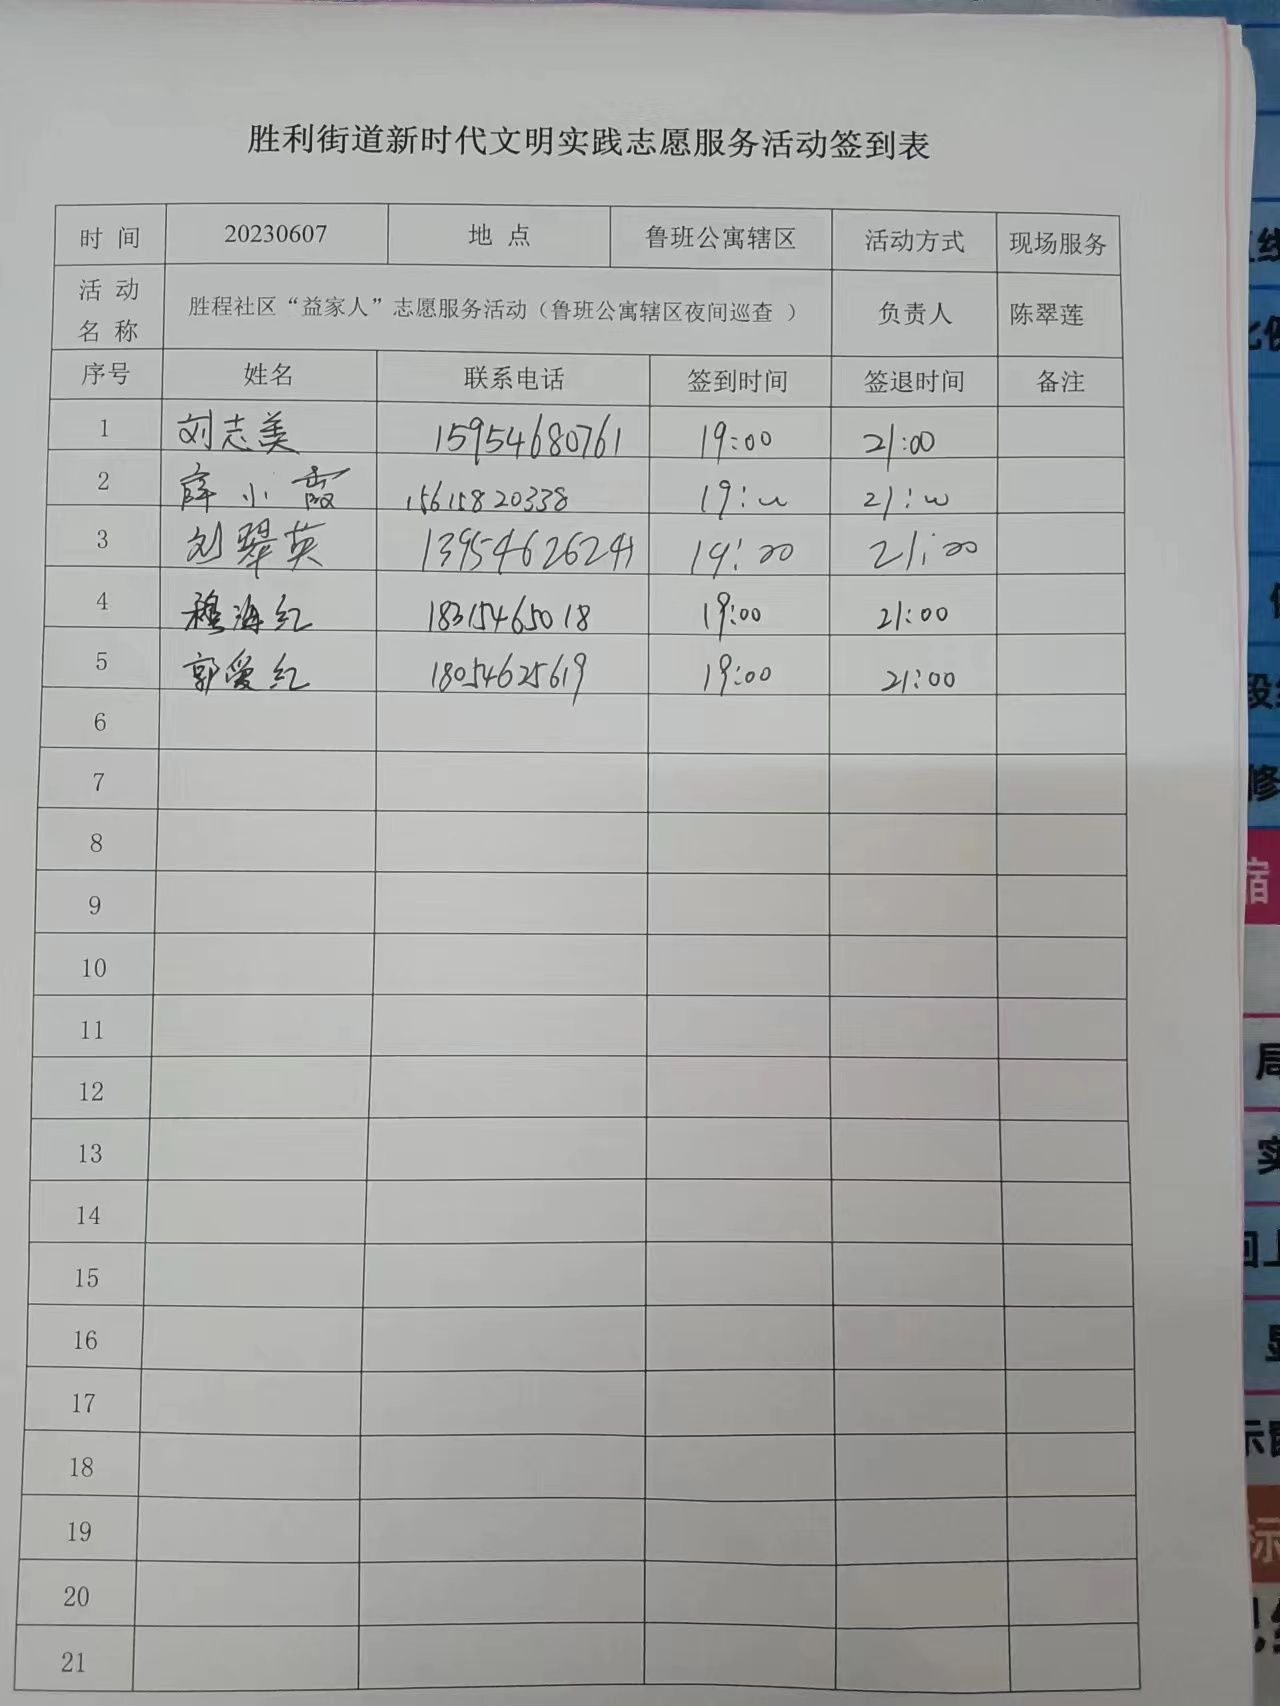 胜利街道新时代文明实践志愿服务活动签到表
时 间 20230607 地 点 鲁班公寓辖区 活动方式 现场服务
活 动 名 称 胜程社区“益家人”志愿服务活动（鲁班公寓辖区夜间巡查 ） 负责人 陈翠莲
序号 姓名 联系电话 签到时间 签退时间 备注
1 刘志美 15954680761 19:00 21:00
2 薛小霞 15615820338 19:00 21:00
3 刘翠英 19:00 21:00
4 穆海红 18315465018 19:00 21:00
5 郭爱红 18054625619 19:00 21:00
6
7
8
9
10
11
12
13
14
15
16
17
18
19
20
21
修
缩
局
实
示